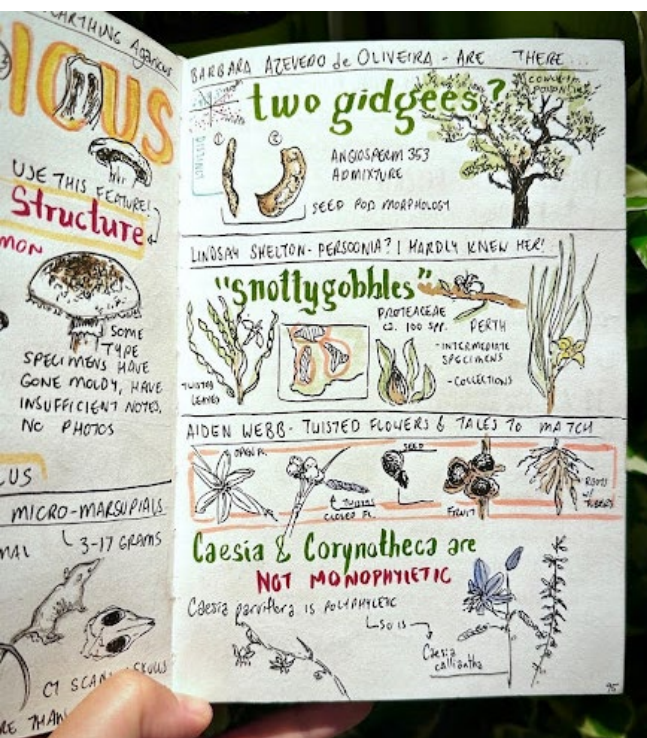 EARTHING Agaricus
IOUS
USE THIS FEATURE!
Structure
MON
SOME
TYPE
SPECIMENS HAVE
GONE MOLDY, HAVE
INSUFFICIENT NOTES,
NO PHOTOS
LUS
MICRO-MARSUPIALS
3-17 GRAMS
CT SCANS SKULLS
RE THAN
BARBARA AZEVEDO de OLIVEIRA - ARE THERE...
two gidgees?
DISTINCT
1
2
ANGIOSPERM 353
ADMIXTURE
SEED POD MORPHOLOGY
LINDSAY SHELTON - PERSOONIA? I HARDLY KNEW HER!
"snottygobbles"
PROTEACEAE
C2. 100 SPP.
PERTH
-INTERMEDIATE
SPECIMENS
-COLLECTIONS
TWISTED
LEAVES
AIDEN WEBB - TWISTED FLOWERS & TALES TO MATCH
OPEN FL.
TWISTY
CLOSED FL.
SEED
FRUIT
ROOTS
W/
TUBERS
Caesia & Corynotheca are
NOT MONOPHYLETIC
Caesia parviflora IS POLYPHYLETIC
SO IS
Caesia
calliantha
95